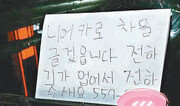 니어카로 차을
글겄읍니다 전하
기가 없어서 전하
주세요 557